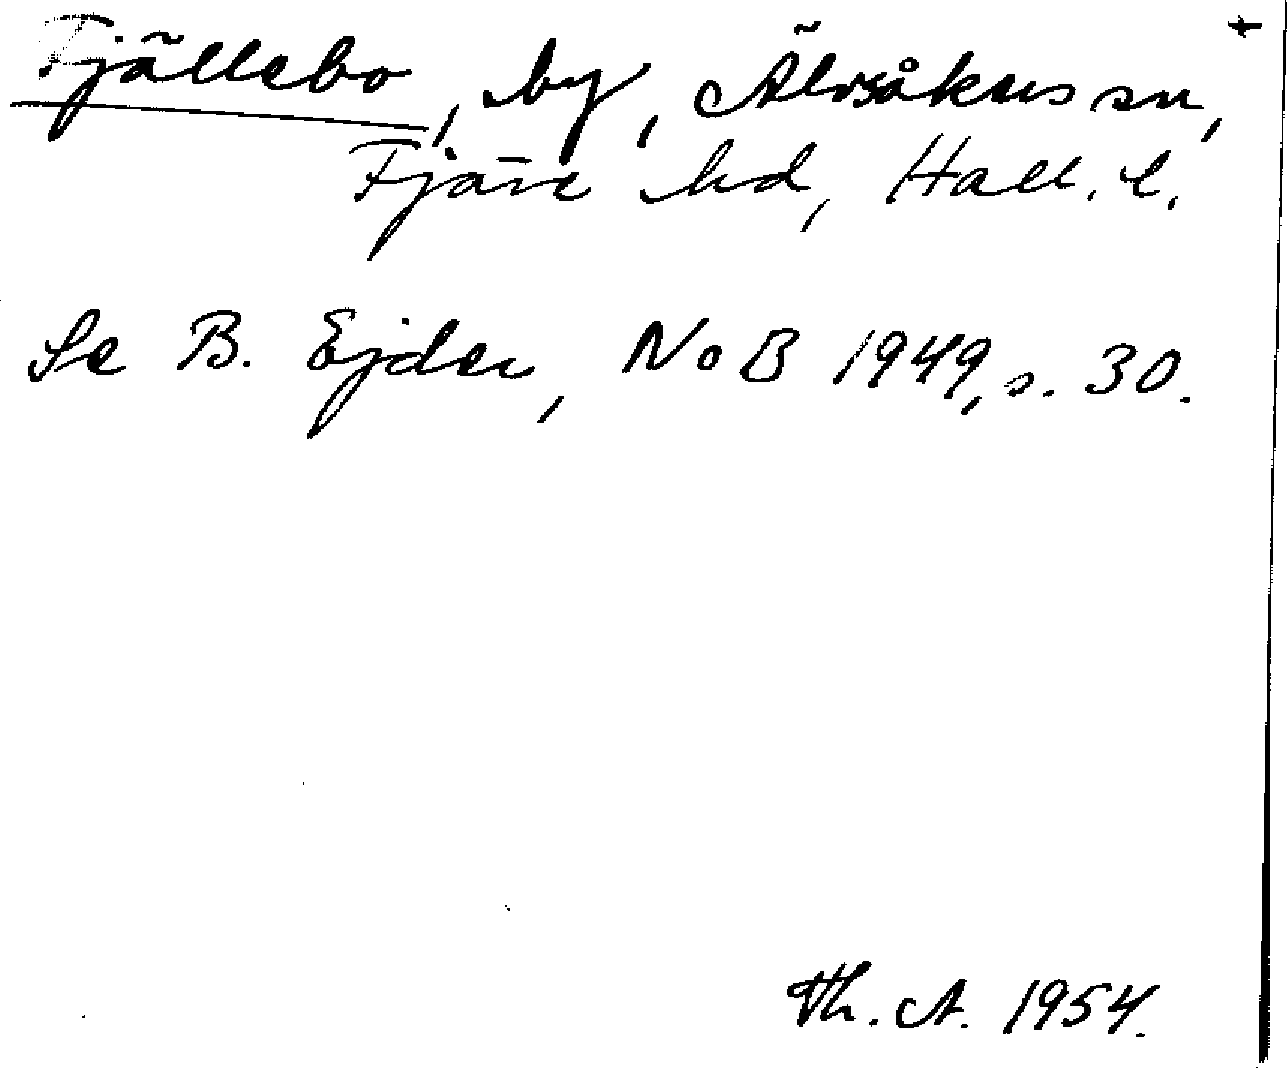 Fjällebo, by, Älvsåkers sn,
Fjäre hd, Hall. l.
Se B. Ejder, NoB 1949, s. 30.
Th. A. 1954.